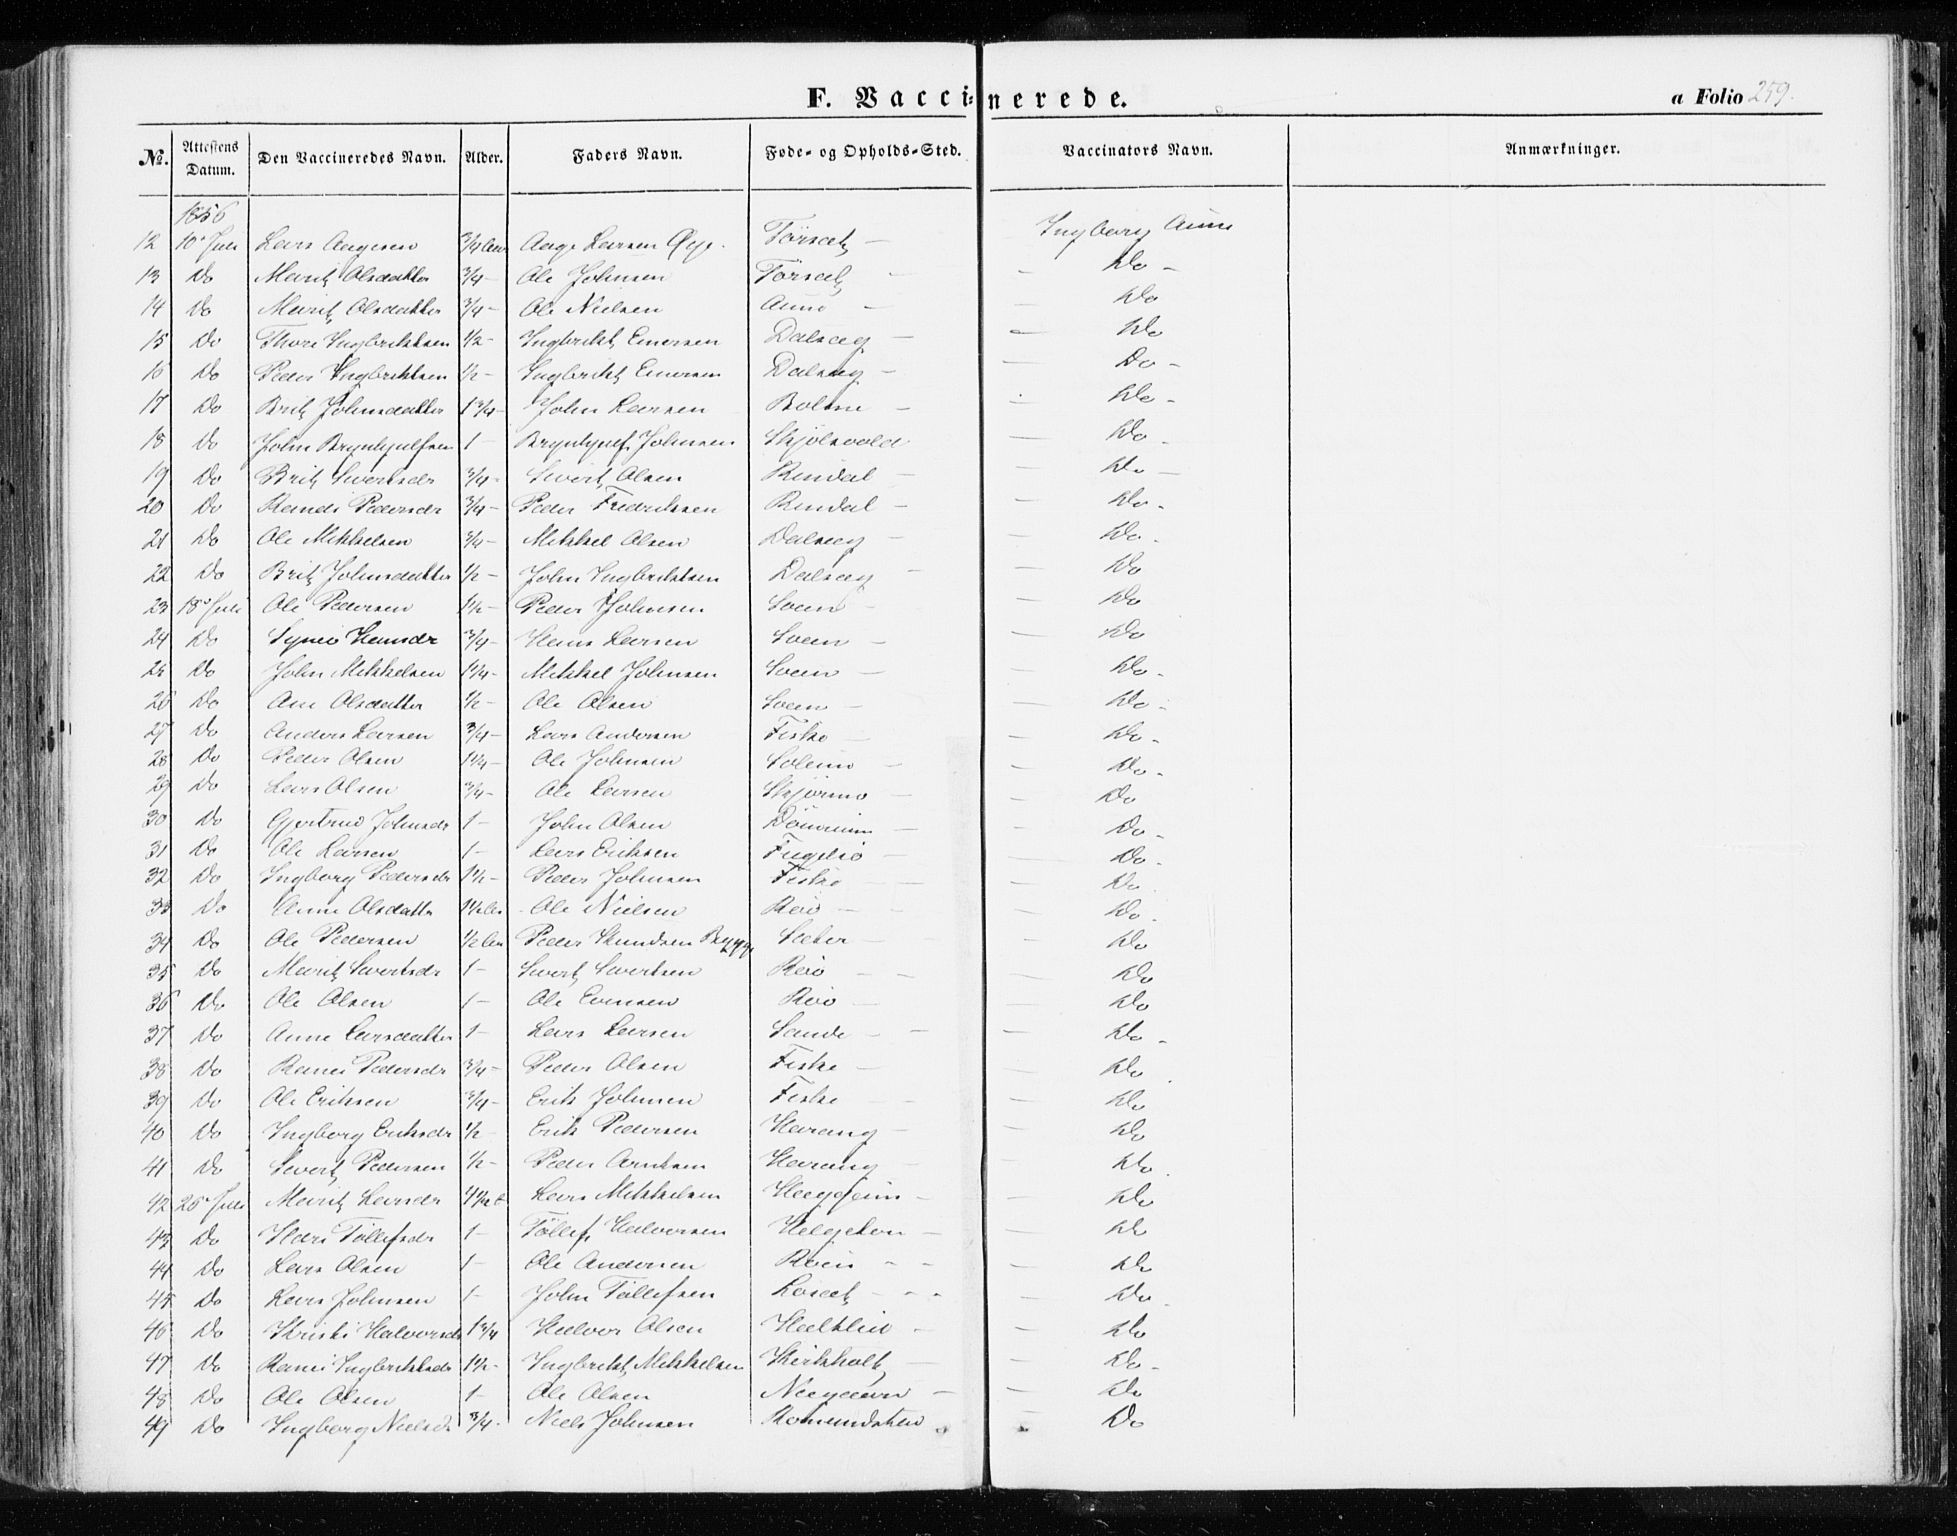 F. Vaccinerede.
a Folio 259.
No. Attestens Datum. Den Vaccineredes Navn. Alder. Faders Navn. Føde- og Opholds-Sted. Vaccinators Navn. Anmærkninger.
1856
12 10de Juli Lars Aagesen 3/4 Aar Aage Larsen Øye Törsæt — Ingborg Aune
13 Do Marit Olsdatter 3/4 - Ole Johnsen Törsæt — — Do -
14 Do Marit Olsdatter 3/4 - Ole Nielsen Aune — — Do
15 Do Thore Ingbriktsen 1/2 - Ingbrikt Einersen Dalseg — — Do
16 Do Peder Ingbriktsen 1/2 - Ingbrikt Einersen Dalseg — — Do -
17 Do Brit Johnsdatter 1 3/4 - John Larsen Bolme — Do -
18 Do John Brynhyulfsen 1 - Brynhyulf Johnsen Skjölsvold — Do -
19 Do Brit Sivertsdr 3/4 - Sivert Olsen Rindal — — Do —
20 Do Randi Pedersdr 3/4 - Peder Fredriksen Rindal — — Do -
21 Do Ole Mikkelsen 3/4 - Mikkel Olsen Dalseg — — Do -
22 Do Brit Johnsdatter 1/2 - John Ingbriktsen Dalseg — — Do
23 18de Juli Ole Pedersen 1 1/2 - Peder Johnsen Soen — — Do
24 Do Hansdr 3/4 - Hans Larsen Soen — — Do
25 Do John Mikkelsen 1 1/4 - Mikkel Johnsen Soen — — Do -
26 Do Ane Olsdatter 1/2 - Ole Olsen Soen — — Do -
27 Do Anders Larsen 3/4 - Lars Andersen Fiske — — Do -
28 Do Peder Olsen 1 1/4 - Ole Johnsen Solem — — Do -
29 Do Lars Olsen 3/4 - Ole Larsen Skjörmo — — Do
30 Do Gjertrud Johnsdr 1 - John Olsen — — Do -
31 Do Ole Larsen 1 - Lars Eriksen Fuglsö — — Do -
32 Do Ingborg Pedersdr 1 1/2 - Peder Johnsen Fiske — — Do -
33 Do Anne Olsdatter 1 1/2 Aar Ole Nielsen Röö — — Do -
34 Do Ole Pedersen 1/2 Aar Peder Knudsen Bægge Sæter — — Do
35 Do Marit Sivertsdr 1 - Sivert Sivertsen Röö — — Do
36 Do Ole Olsen 1 - Ole Evensen Röö — — Do
37 Do Anne Larsdatter 1 - Lars Larsen Sande — — Do -
38 Do Ranei Pedersdr 3/4 - Peder Olsen Fiske — — Do
39 Do Ole Eriksen 3/4 - Erik Johnsen Fiske — — Do
40 Do Ingborg Eriksdr 1/2 - Erik Pedersen Harang — — Do
41 Do Sivert Pedersen 1/2 - Peder Arntsen Harang — Do
42 26de Juli Marit Larsdr 1 1/2 Lars Mikkelsen — — Do
43 Do Tøllefsdr 1 - Tøllef Halvorsen Helgeton — — Do
44 Do Lars Olsen 1 - Ole Andersen Röen — — Do
45 Do Lars Johnsen 1 - John Tøllefsen Löset — — Do
46 Do Kristi Halvorsdr 1 3/4 Halvor Olsen Haltlia — — Do
47 Do Ranei Ingbriktsdr 1 1/2 - Ingbrikt Mikkelsen Kirkholt — — Do -
48 Do Ole Olsen 1 - Ole Olsen — — Do
49 Do Ingborg Nielsdr 3/4 - Niels Johnsen Romundstad — Do